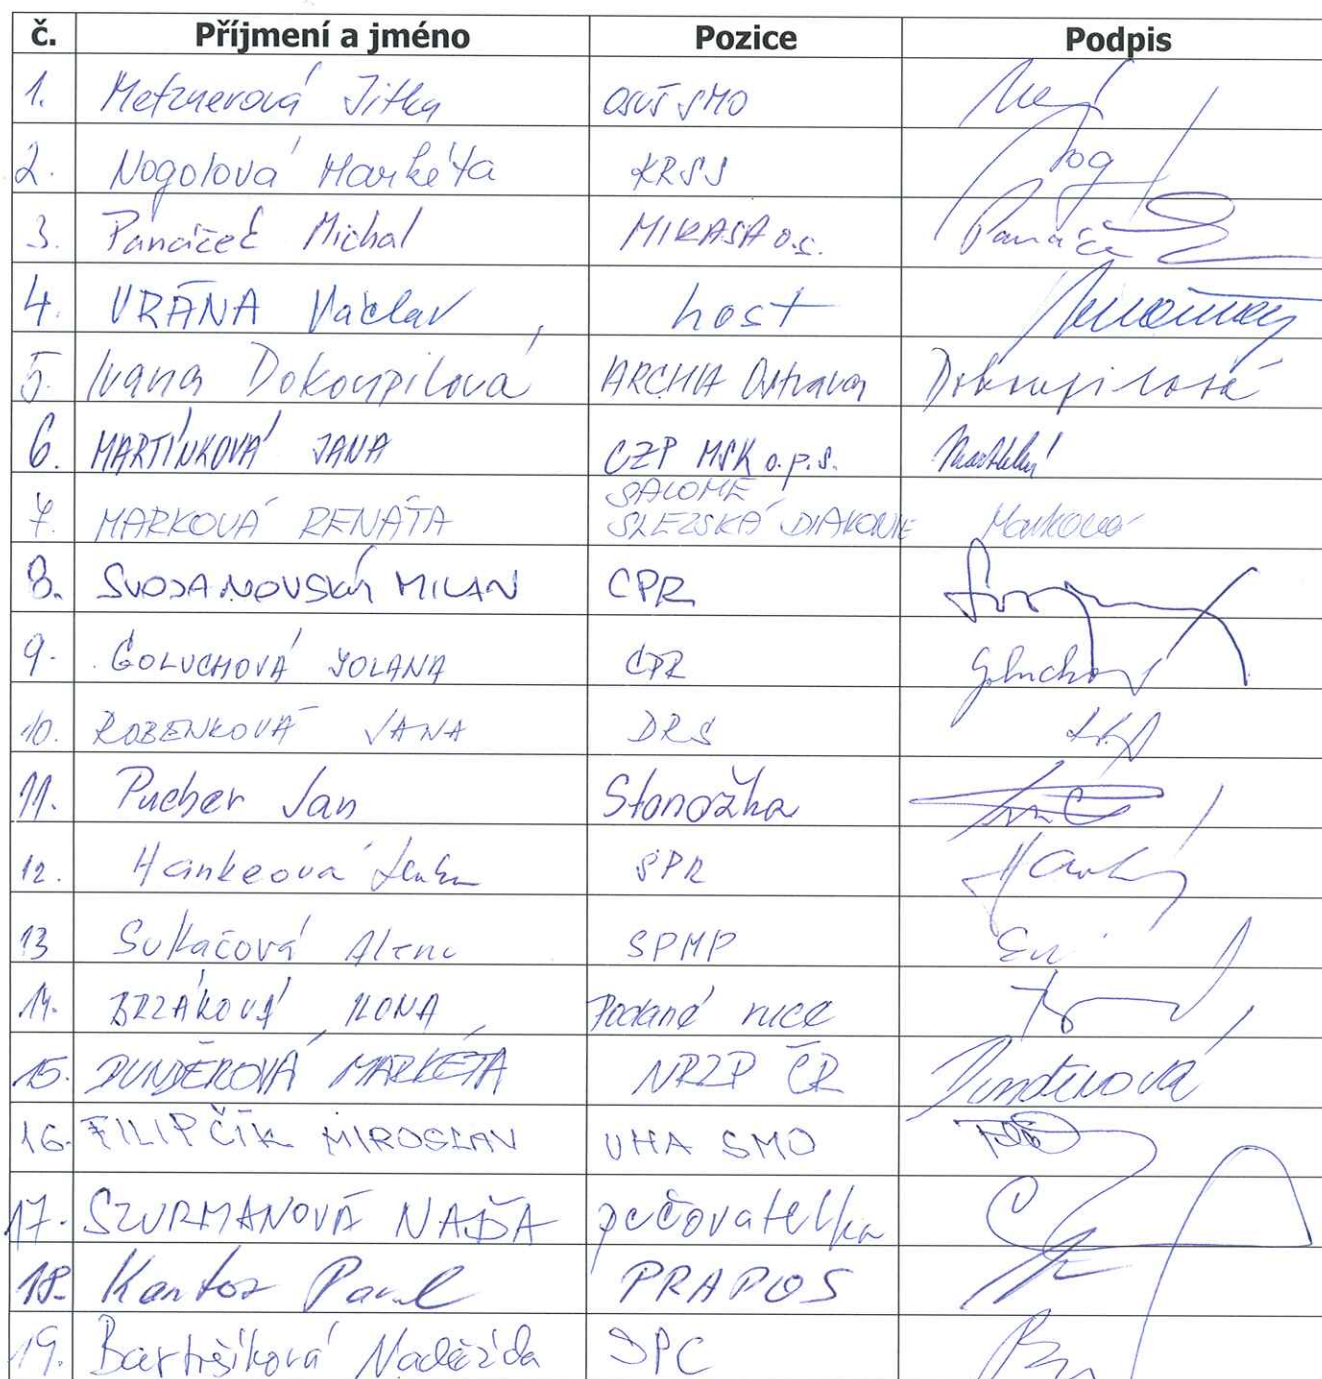 č. Příjmení a jméno Pozice Podpis
1. Metznerová Jitka OSVŠ SMO
2. Nogolová Markéta KRSS Nog
3. Panáček Michal MIKASA o.s. Panáče
4. VRÁNA Václav, host
5. Ivana Dokoupilová ARCHA Ostrava Dokoupilová
6. MARTÍNKOVÁ JANA CZP MSK o.p.s.
7. MARKOVÁ RENÁTA SALOME SLEZSKÁ DIAKONIE Marková
8. SVOJANOVSKÝ MILAN CPR
9. GOLUCHOVÁ JOLANA CPR Goluchov
10. ROBENKOVÁ JANA DRS
11. Pucher Jan Stonožka
12. Hankeová Lenka SPR
13 Sukačová Alena SPMP
14. BRZÁKOVÁ ILONA Podané ruce
15. DUNDĚROVÁ MARKÉTA NRZP ČR Dunděrová
16. FILIPČÍK MIROSLAV UHA SMO
17. SZURMANOVÁ NAĎA pečovatelka
18. Kantor Pavel PRAPOS
19. Bartošíková Naděžda SPC